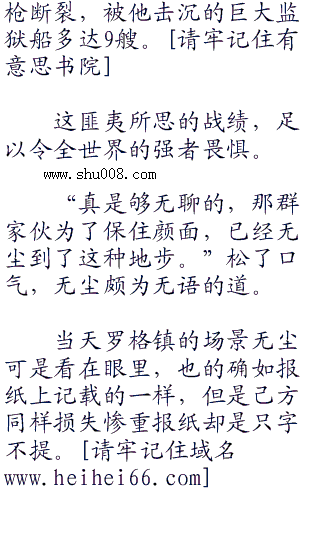 枪断裂，被他击沉的巨大监
狱船多达9艘。[请牢记住有
意思书院]
这匪夷所思的战绩，足
以令全世界的强者畏惧。
www.shu008.com
“真是够无聊的，那群
家伙为了保住颜面，已经无
尘到了这种地步。”松了口
气，无尘颇为无语的道。
当天罗格镇的场景无尘
可是看在眼里，也的确如报
纸上记载的一样，但是己方
同样损失惨重报纸却是只字
不提。[请牢记住域名
www.heihei66.com]